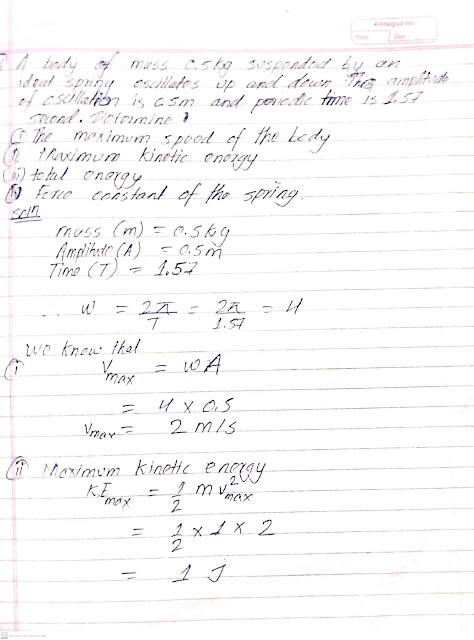 Annapurna
Page Date
Q A body of mass 0.5kg suspended by an
ideal spring oscillates up and down. The amplitude
of oscillation is 0.5m and periodic time is 1.57
second. Determine
(i) The maximum speed of the body
(ii) Maximum Kinetic energy
(iii) total energy
(iv) Force constant of the spring.
Soln
mass (m) = 0.5kg
Amplitude (A) = 0.5m
Time (T) = 1.57
∴ w = 2π/T = 2π/1.57 = 4
We know that
(i) Vmax = wA
= 4 x 0.5
Vmax = 2 m/s
(ii) Maximum kinetic energy
K.Emax = 1/2 m v²max
= 1/2 x 1 x 2
= 1 J